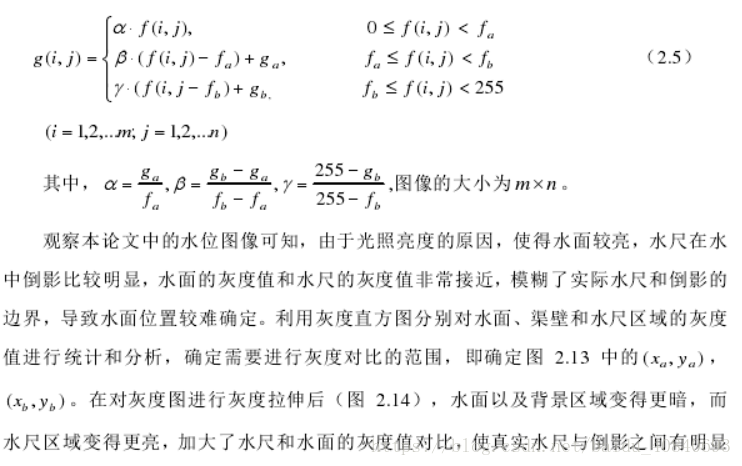 g(i,j) = { α· f(i,j), 0 ≤ f(i,j) < f_a
β·(f(i,j)- f_a)+ g_a, f_a ≤ f(i,j) < f_b (2.5)
γ·(f(i,j- f_b)+ g_b. f_b ≤ f(i,j) < 255
(i = 1,2,...m; j = 1,2,...n)
其中， α = g_a/f_a , β = (g_b - g_a)/(f_b - f_a) , γ = (255 - g_b)/(255 - f_b) ,图像的大小为 m×n 。
观察本论文中的水位图像可知，由于光照亮度的原因，使得水面较亮，水尺在水
中倒影比较明显，水面的灰度值和水尺的灰度值非常接近，模糊了实际水尺和倒影的
边界，导致水面位置较难确定。利用灰度直方图分别对水面、渠壁和水尺区域的灰度
值进行统计和分析，确定需要进行灰度对比的范围，即确定图 2.13 中的 (x_a, y_a) ，
(x_b, y_b) 。在对灰度图进行灰度拉伸后（图 2.14），水面以及背景区域变得更暗，而
水尺区域变得更亮，加大了水尺和水面的灰度值对比，使真实水尺与倒影之间有明显